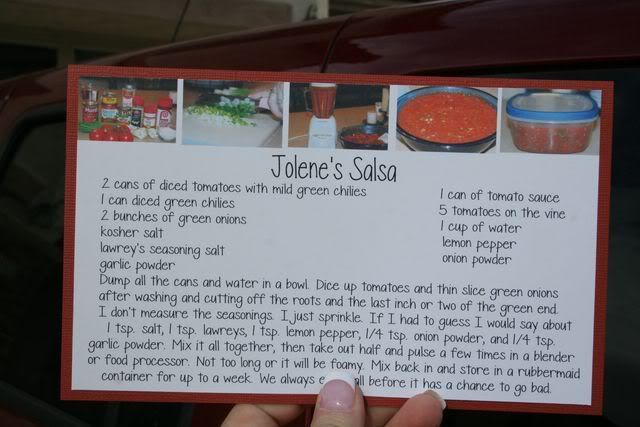 Jolene's Salsa
2 cans of diced tomatoes with mild green chilies
1 can diced green chilies
2 bunches of green onions
kosher salt
lawrey's seasoning salt
garlic powder
1 can of tomato sauce
5 tomatoes on the vine
1 cup of water
lemon pepper
onion powder
Dump all the cans and water in a bowl. Dice up tomatoes and thin slice green onions
after washing and cutting off the roots and the last inch or two of the green end.
I don't measure the seasonings. I just sprinkle. If I had to guess I would say about
1 tsp. salt, 1 tsp. lawreys, 1 tsp. lemon pepper, 1/4 tsp. onion powder, and 1/4 tsp.
garlic powder. Mix it all together, then take out half and pulse a few times in a blender
or food processor. Not too long or it will be foamy. Mix back in and store in a rubbermaid
container for up to a week. We always all before it has a chance to go bad.